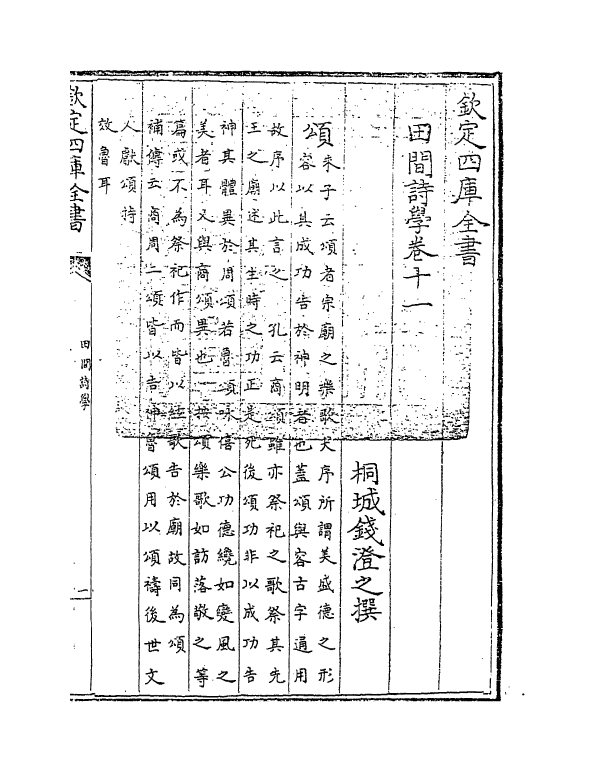 欽定四庫全書
田間詩學卷十一
桐城錢澄之撰
頌朱子云頌者宗廟之樂歌大序所謂美盛德之形
容以其成功告於神明者也蓋頌與容古字通用
故序以此言之 孔云商頌雖亦祭祀之歌祭其先
王之廟述其生時之功正是死後頌功非以成功告
神其體異於周頌若魯頌咏僖公功德纔如變風之
美者耳又與商頌異也 頌樂歌如訪落敬之等
篇或不為祭祀作而皆以歌告於廟故同為頌
補傳云商周二頌皆以告神魯頌用以頌禱後世文
人獻頌特
效魯耳
欽定四庫全書
田間詩學
一